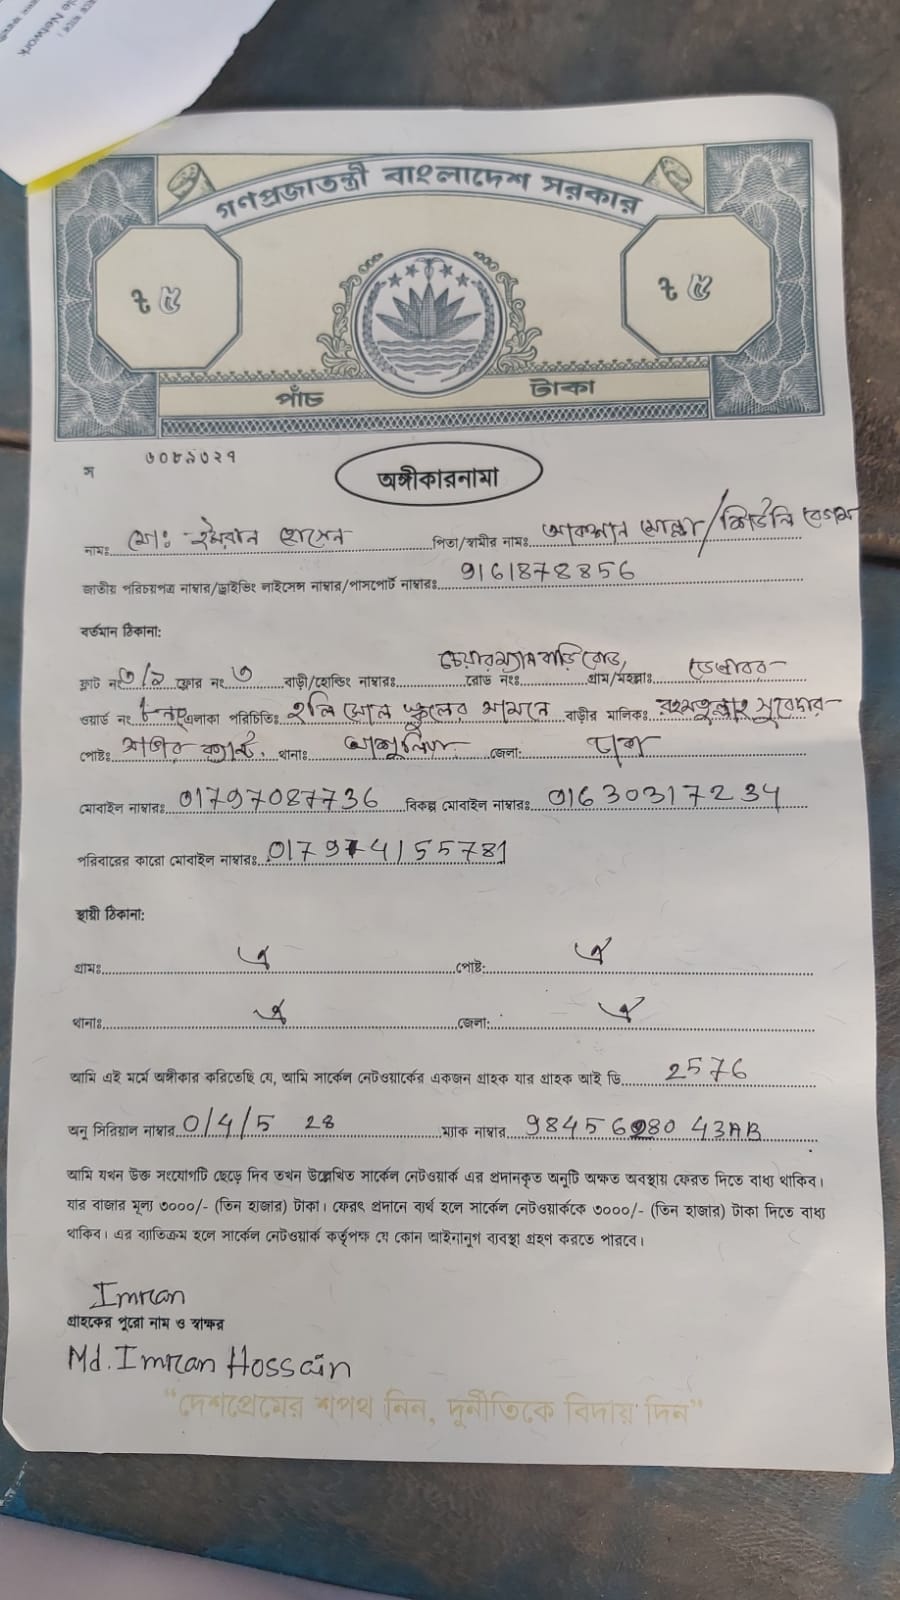 le Network
গণপ্রজাতন্ত্রী বাংলাদেশ সরকার
৳ ৫ ৳ ৫
পাঁচ টাকা
স ৩০৮৯৩২৭
অঙ্গীকারনামা
নামঃ মোঃ ইমরান হোসেন পিতা/স্বামীর নামঃ মোল্লা/শিউলি বেগম
জাতীয় পরিচয়পত্র নাম্বার/ড্রাইভিং লাইসেন্স নাম্বার/পাসপোর্ট নাম্বারঃ 9161878856
বর্তমান ঠিকানা:
ফ্লাট নং ৩/২ ফ্লোর নং ৩ বাড়ী/হোল্ডিং নাম্বারঃ রোড নংঃ চেয়ারম্যান বাড়ি রোড, গ্রাম/মহল্লাঃ ডেন্ডাবর
ওয়ার্ড নং ৮নং এলাকা পরিচিতিঃ হলি সোল স্কুলের সামনে বাড়ীর মালিকঃ রহমতুল্লাহ সুবেদার
পোষ্টঃ সাভার ক্যান্ট. থানাঃ আশুলিয়া জেলা: ঢাকা
মোবাইল নাম্বারঃ 01797087736 বিকল্প মোবাইল নাম্বারঃ 01630317234
পরিবারের কারো মোবাইল নাম্বারঃ
স্থায়ী ঠিকানা:
গ্রামঃ ঐ পোষ্ট: ঐ
থানাঃ ঐ জেলা: ঐ
আমি এই মর্মে অঙ্গীকার করিতেছি যে, আমি সার্কেল নেটওয়ার্কের একজন গ্রাহক যার গ্রাহক আই ডি 2576
অনু সিরিয়াল নাম্বার 0/4/5 28 ম্যাক নাম্বার 43AB
আমি যখন উক্ত সংযোগটি ছেড়ে দিব তখন উল্লেখিত সার্কেল নেটওয়ার্ক এর প্রদানকৃত অনুটি অক্ষত অবস্থায় ফেরত দিতে বাধ্য থাকিব।
যার বাজার মূল্য ৩০০০/- (তিন হাজার) টাকা। ফেরৎ প্রদানে ব্যর্থ হলে সার্কেল নেটওয়ার্ককে ৩০০০/- (তিন হাজার) টাকা দিতে বাধ্য
থাকিব। এর ব্যতিক্রম হলে সার্কেল নেটওয়ার্ক কর্তৃপক্ষ যে কোন আইনানুগ ব্যবস্থা গ্রহণ করতে পারবে।
Imran
গ্রাহকের পুরো নাম ও স্বাক্ষর
Md. Imran Hossain
"দেশপ্রেমের শপথ নিন, দুর্নীতিকে বিদায় দিন"